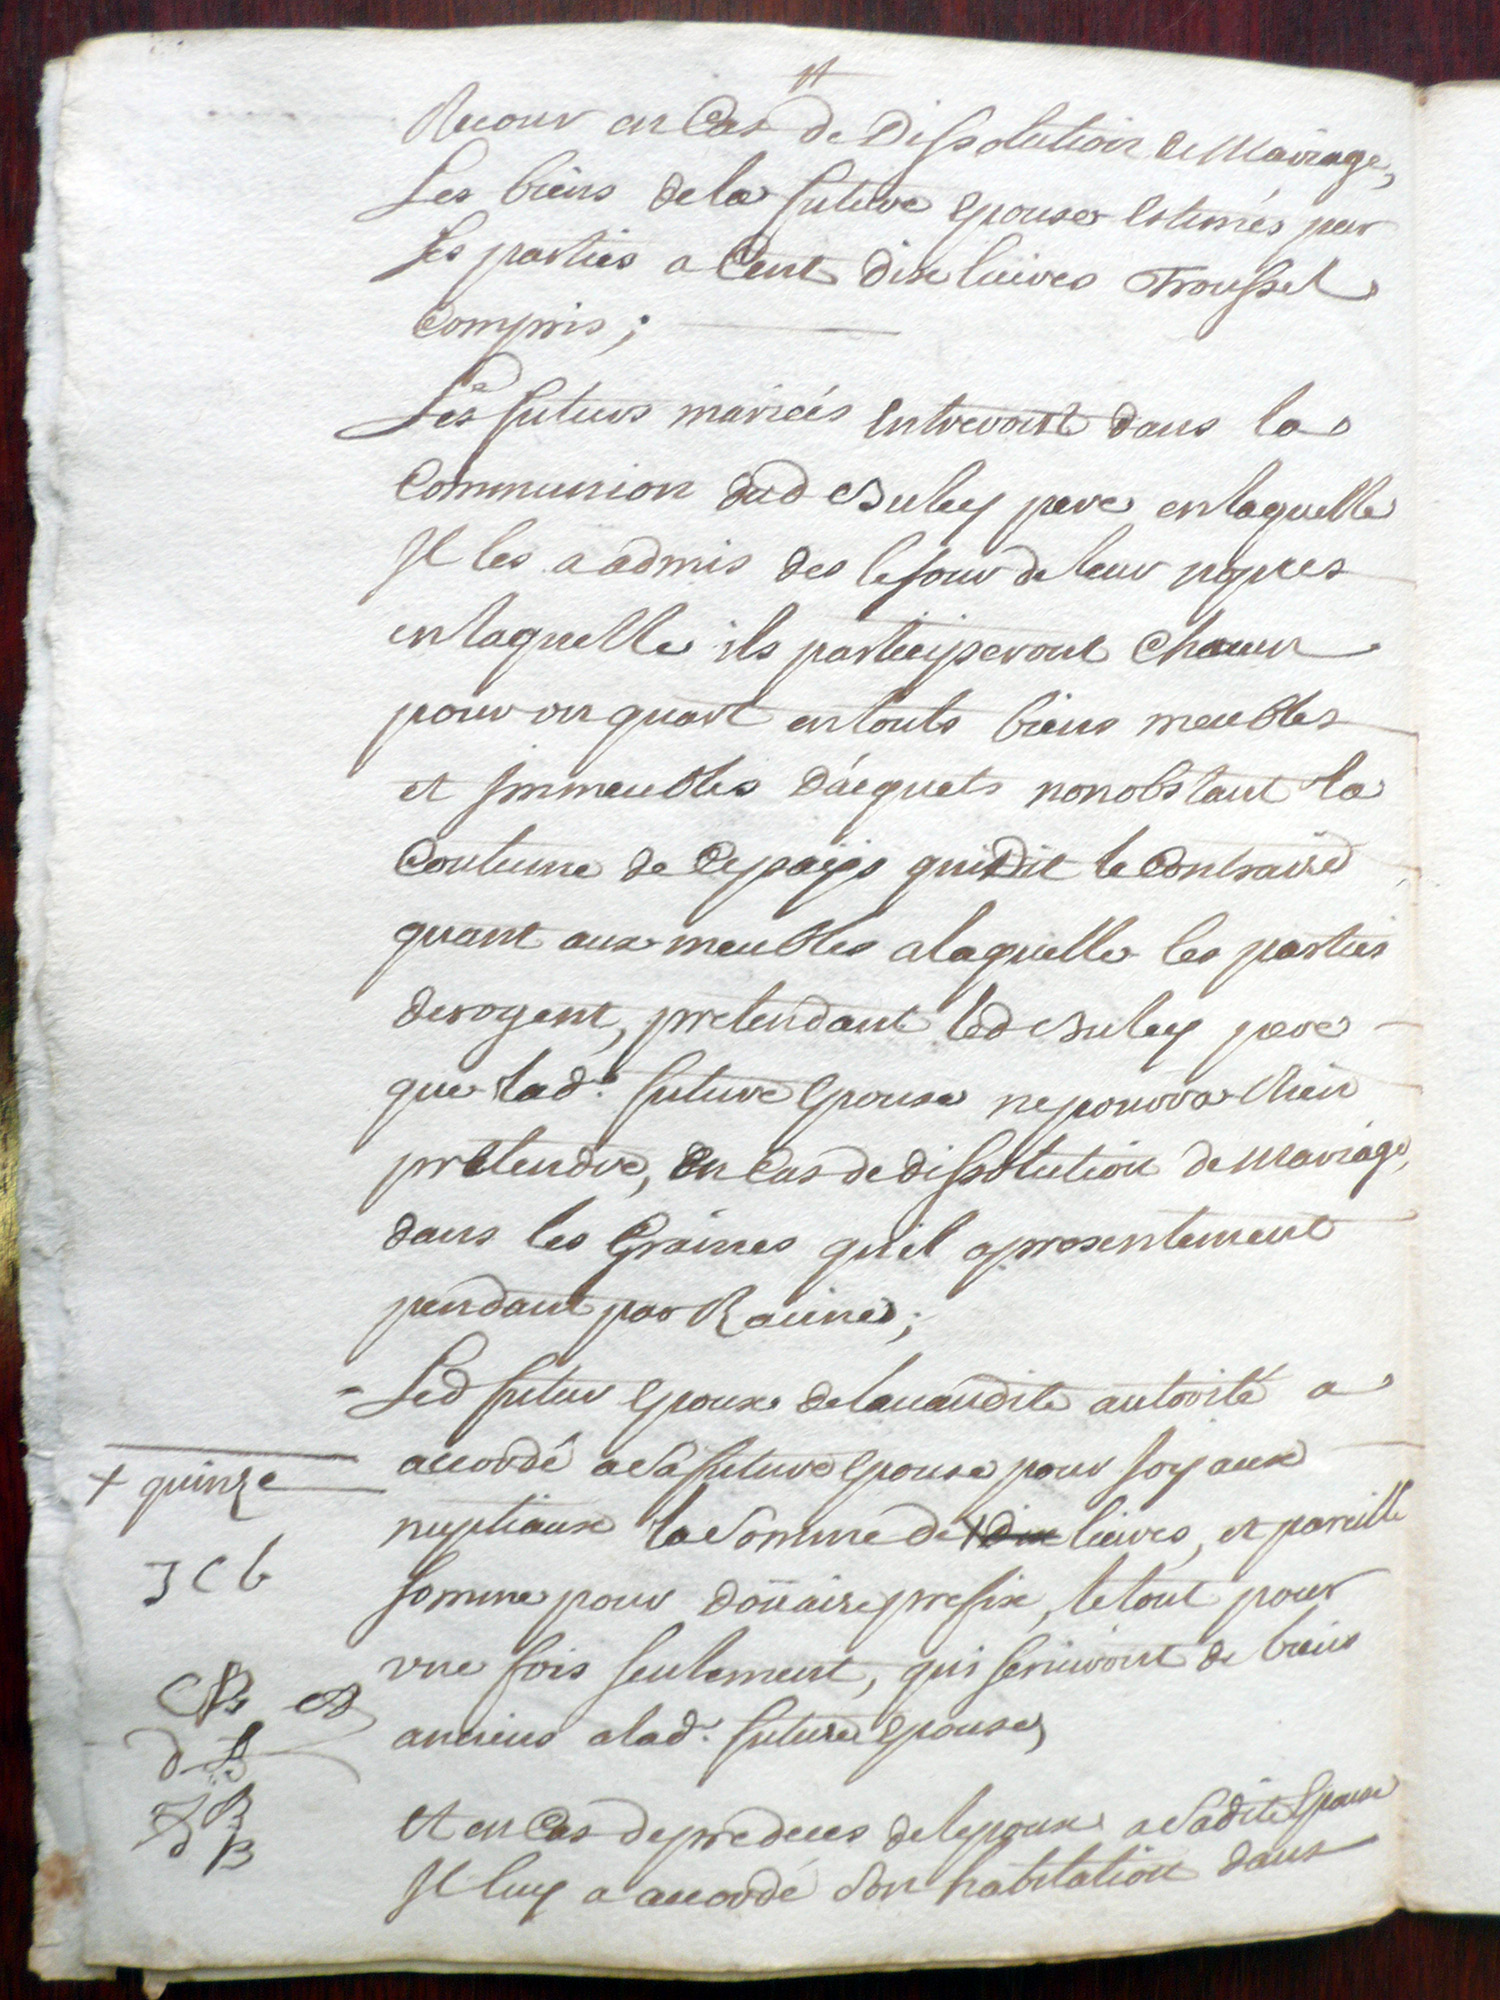 Recour en Cas de Dissolution de Mariage,
Les biens de la future Epouse Estimés par
Les parties a Cent dix livres Troussel
Compris;
Les futurs mariées Entreront dans la
Communion dud Buley pere en laquelle
Il les a admis des le jour de leur nopces
en laquelle ils participeront Chacun
pour un quart en touts biens meubles
et jmmeubles d'acquets nonobstant la
Coutume de Ce païs qui Dit le Contraire
quant aux meubles a laquelle les parties
derogent, pretendant led Buley pere
que lad.e future Epouse ne pourra Rien
pretendre, En Cas de dissolution de Mariage,
dans les Graines qu'il a presentement
pendant par Racines;
= Led futur Epoux de lauandite autorité a
accordé a Sa future Epouse pour joyaux
nuptiaux la Somme de + dix livres, et pareille
somme pour doüaire prefix, le tout pour
vne fois seulement, qui seruiront de biens
anciens a lad.e future Epouse,
Et en Cas de predeces de lepoux a Sadite Epouse
Il luy a accordé Son habitation dans
+ quinze
J C b
CB
d B
B